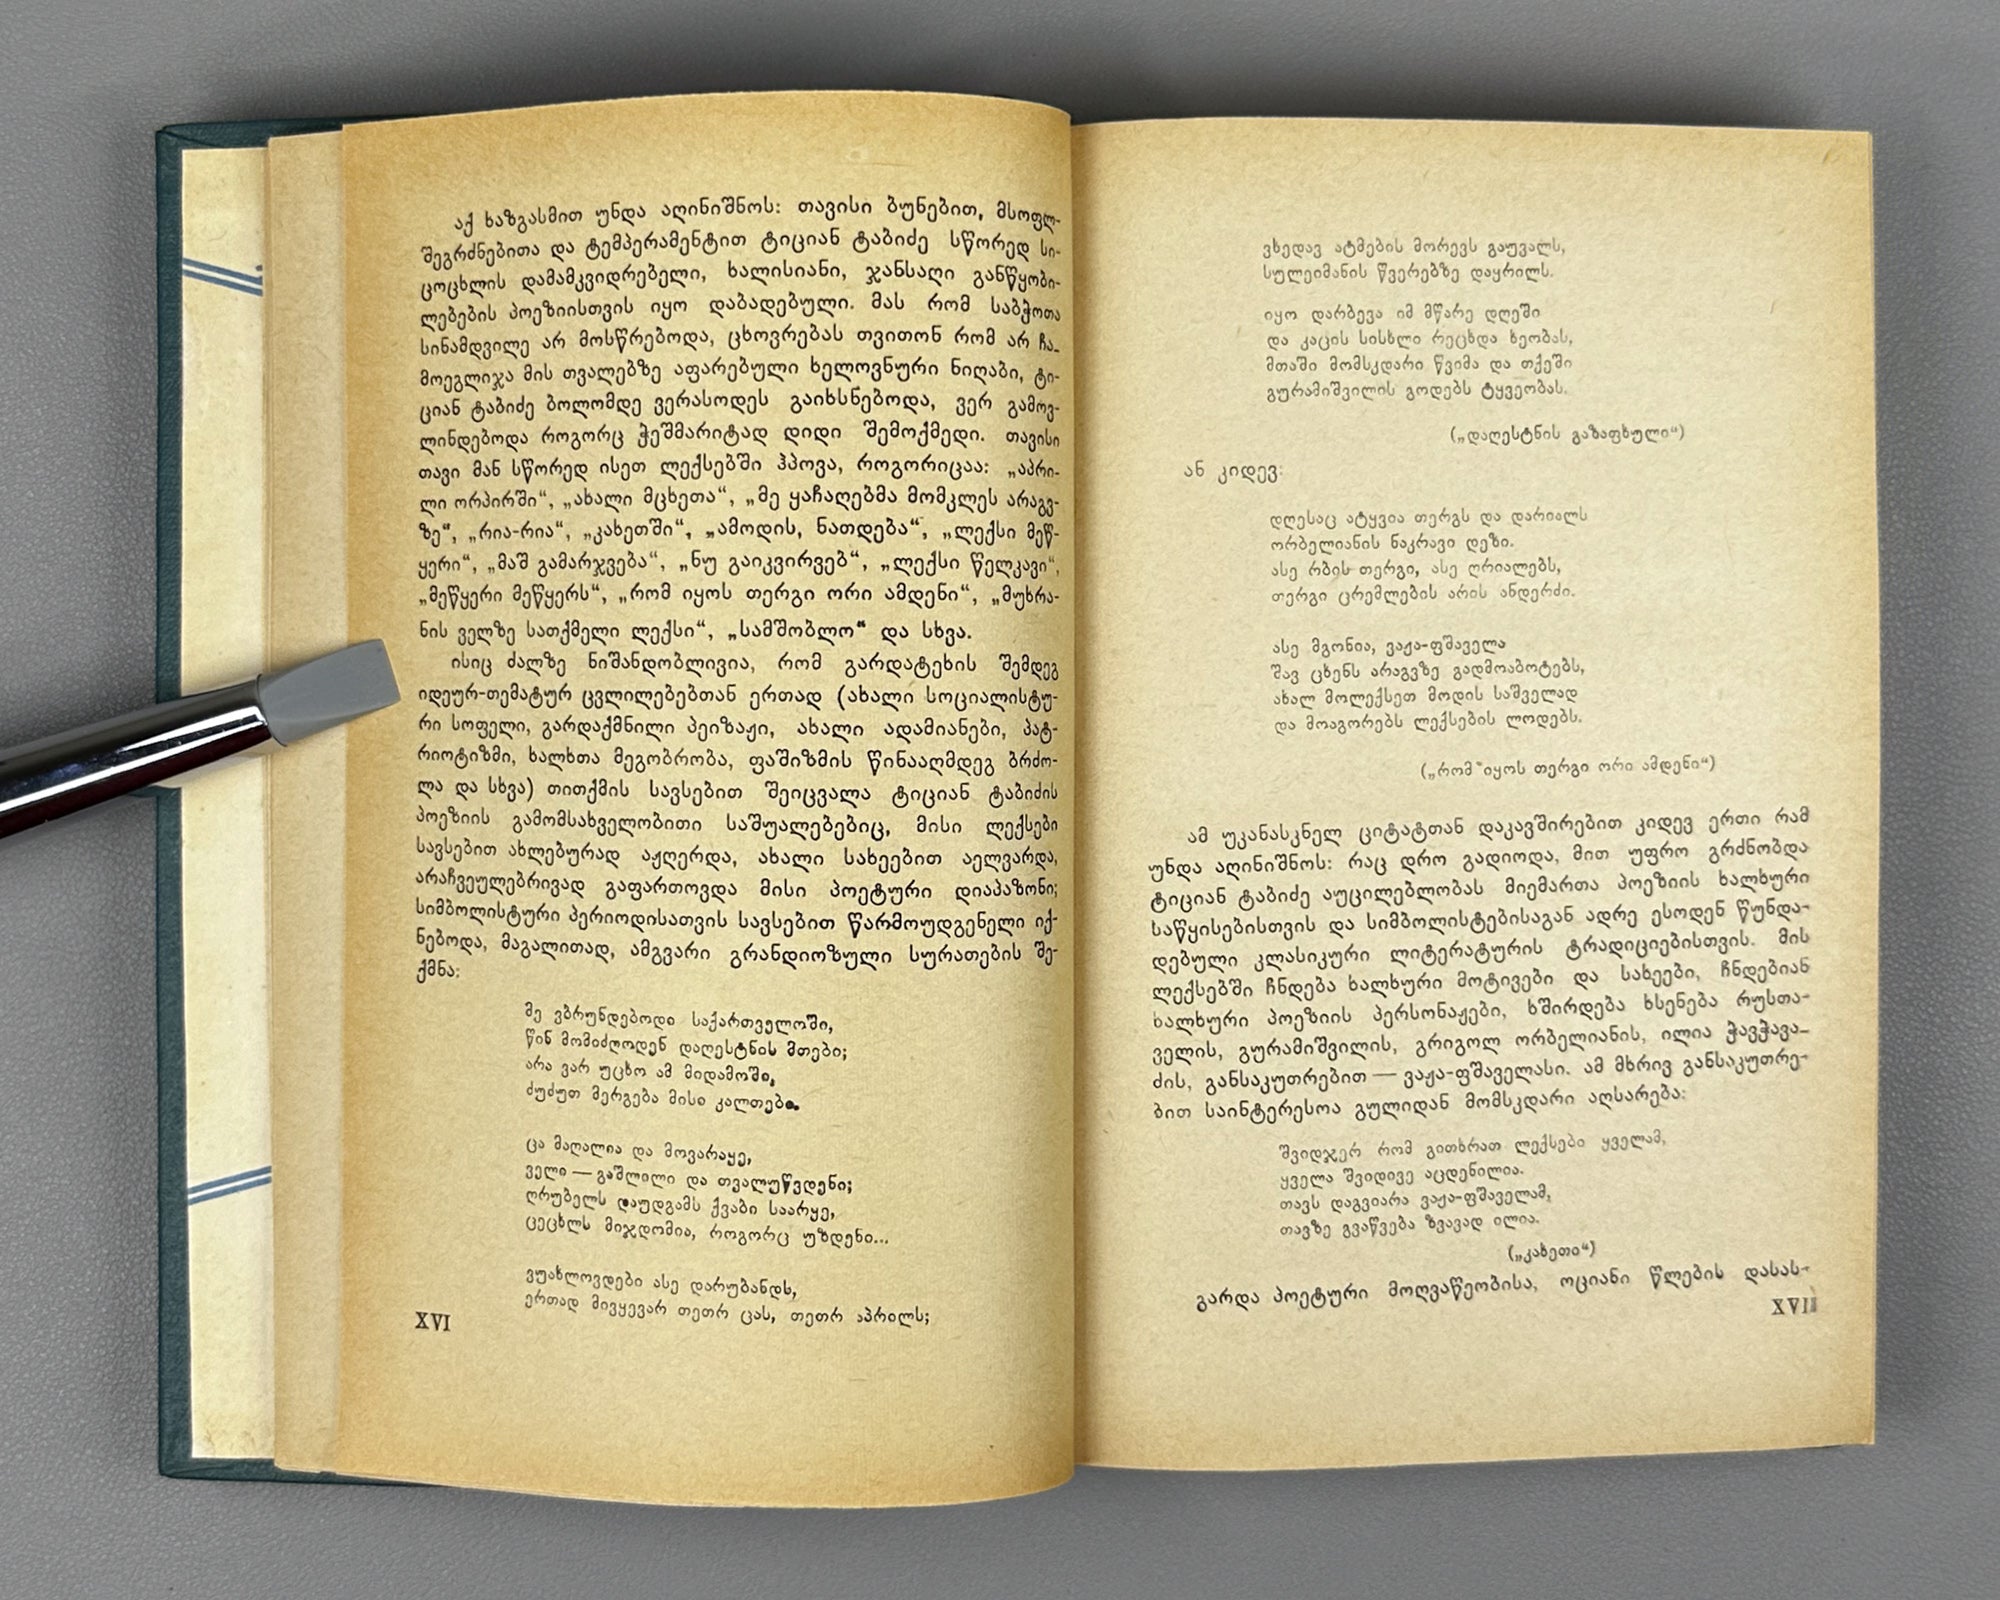 აქ ხაზგასმით უნდა აღინიშნოს: თავისი ბუნებით, მსოფლ-
შეგრძნებითა და ტემპერამენტით ტიციან ტაბიძე სწორედ სი-
ცოცხლის დამამკვიდრებელი, ხალისიანი, ჯანსაღი განწყობი-
ლებების პოეზიისთვის იყო დაბადებული. მას რომ საბჭოთა
სინამდვილე არ მოსწრებოდა, ცხოვრებას თვითონ რომ არ ჩა-
მოეგლიჯა მის თვალებზე აფარებული ხელოვნური ნიღაბი, ტი-
ციან ტაბიძე ბოლომდე ვერასოდეს გაიხსნებოდა, ვერ გამოვ-
ლინდებოდა როგორც ჭეშმარიტად დიდი შემოქმედი. თავისი
თავი მან სწორედ ისეთ ლექსებში ჰპოვა, როგორიცაა: „აპრი-
ლი ორპირში“, „ახალი მცხეთა“, „მე ყაჩაღებმა მომკლეს არაგვ-
ზე“, „რია-რია“, „კახეთში“, „ამოდის, ნათდება“, „ლექსი მეწ-
ყერი“, „მაშ გამარჯვება“, „ნუ გაიკვირვებ“, „ლექსი წელკავი“,
„მეწყერი მეწყერს“, „რომ იყოს თერგი ორი ამდენი“, „მუხრა-
ნის ველზე სათქმელი ლექსი“, „სამშობლო“ და სხვა.
ისიც ძალზე ნიშანდობლივია, რომ გარდატეხის შემდეგ
იდეურ-თემატურ ცვლილებებთან ერთად (ახალი სოციალისტუ-
რი სოფელი, გარდაქმნილი პეიზაჟი, ახალი ადამიანები, პატ-
რიოტიზმი, ხალხთა მეგობრობა, ფაშიზმის წინააღმდეგ ბრძო-
ლა და სხვა) თითქმის სავსებით შეიცვალა ტიციან ტაბიძის
პოეზიის გამომსახველობითი საშუალებებიც, მისი ლექსები
სავსებით ახლებურად აჟღერდა, ახალი სახეებით აელვარდა,
არაჩვეულებრივად გაფართოვდა მისი პოეტური დიაპაზონი;
სიმბოლისტური პერიოდისათვის სავსებით წარმოუდგენელი იქ-
ნებოდა, მაგალითად, ამგვარი გრანდიოზული სურათების შე-
ქმნა:
მე ვბრუნდებოდი საქართველოში,
წინ მომიძღოდენ დაღესტნის მთები;
არა ვარ უცხო ამ მიდამოში,
ძუძუთ მერგება მისი კალთები.
ცა მაღალია და მოვარაყე,
ველი — გაშლილი და თვალუწვდენი;
ღრუბელს დაუდგამს ქვაბი საარყე,
ცეცხლს მიჯდომია, როგორც უზდენი...
ვუახლოვდები ასე დარუბანდს,
ერთად მივყევარ თეთრ ცას, თეთრ აპრილს;
XVI
ვხედავ ატმების მორევს გაუვალს,
სულეიმანის წვერებზე დაყრილს.
იყო დარბევა იმ მწარე დღეში
და კაცის სისხლი რეცხდა ხეობას,
მთაში მომსკდარი წვიმა და თქეში
გურამიშვილის გოდებს ტყვეობას.
(„დაღესტნის გაზაფხული“)
ან კიდევ:
დღესაც ატყვია თერგს და დარიალს
ორბელიანის ნაკრავი დეზი.
ასე რბის თერგი, ასე ღრიალებს,
თერგი ცრემლების არის ანდერძი.
ასე მგონია, ვაჟა-ფშაველა
შავ ცხენს არაგვზე გადმოაბოტებს,
ახალ მოლექსეთ მოდის საშველად
და მოაგორებს ლექსების ლოდებს.
(„რომ იყოს თერგი ორი ამდენი“)
ამ უკანასკნელ ციტატთან დაკავშირებით კიდევ ერთი რამ
უნდა აღინიშნოს: რაც დრო გადიოდა, მით უფრო გრძნობდა
ტიციან ტაბიძე აუცილებლობას მიემართა პოეზიის ხალხური
საწყისებისთვის და სიმბოლისტებისაგან ადრე ესოდენ წუნდა-
დებული კლასიკური ლიტერატურის ტრადიციებისთვის. მის
ლექსებში ჩნდება ხალხური მოტივები და სახეები, ჩნდებიან
ხალხური პოეზიის პერსონაჟები, ხშირდება ხსენება რუსთა-
ველის, გურამიშვილის, გრიგოლ ორბელიანის, ილია ჭავჭავა-
ძის, განსაკუთრებით — ვაჟა-ფშაველასი. ამ მხრივ განსაკუთრე-
ბით საინტერესოა გულიდან მომსკდარი აღსარება:
შვიდჯერ რომ გითხრათ ლექსები ყველამ,
ყველა შვიდივე აცდენილია.
თავს დაგვიარა ვაჟა-ფშაველამ,
თავზე გვაწვება ზვავად ილია.
(„კახეთი“)
გარდა პოეტური მოღვაწეობისა, ოციანი წლების დასას-
XVII